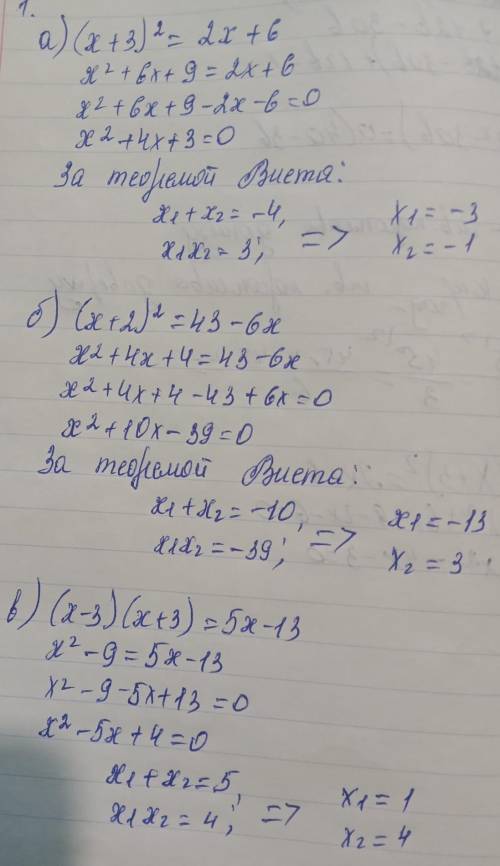 1.
а) (x+3)² = 2x+6
x²+6x+9=2x+6
x²+6x+9-2x-6=0
x²+4x+3=0
За теоремой Виета:
x₁+x₂=-4,
x₁x₂=3; => x₁=-3
x₂=-1
б) (x+2)²=43-6x
x²+4x+4=43-6x
x²+4x+4-43+6x=0
x²+10x-39=0
За теоремой Виета:
x₁+x₂=-10,
x₁x₂=-39; => x₁=-13
x₂=3
в) (x-3)(x+3)=5x-13
x²-9=5x-13
x²-9-5x+13=0
x²-5x+4=0
x₁+x₂=5,
x₁x₂=4; => x₁=1
x₂=4